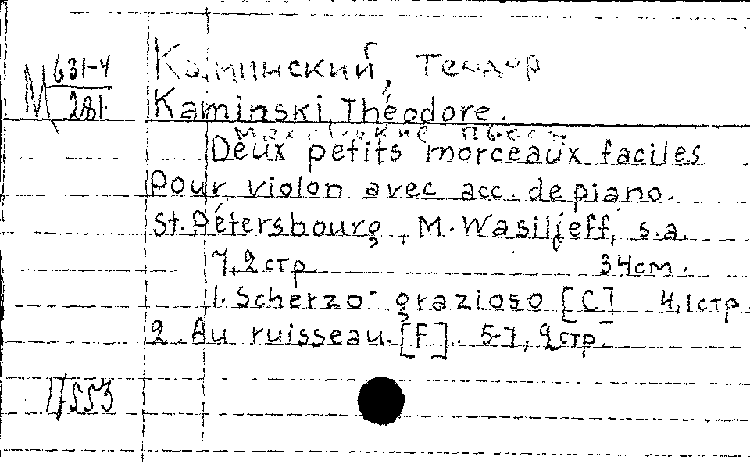 М 631-4
281
Каминский, Теодор
Kaminski, Théodore.
Маленькие пьесы
Deux petits morceaux faciles
pour violon avec acc. de piano.
St. Pétersbourg, M. Wasiljeff, s.a.
7, 2 стр 34 см.
1. Scherzo grazioso [C] 4, 1 стр.
2. Au ruisseau [F] 5-7, 2 стр.
17553